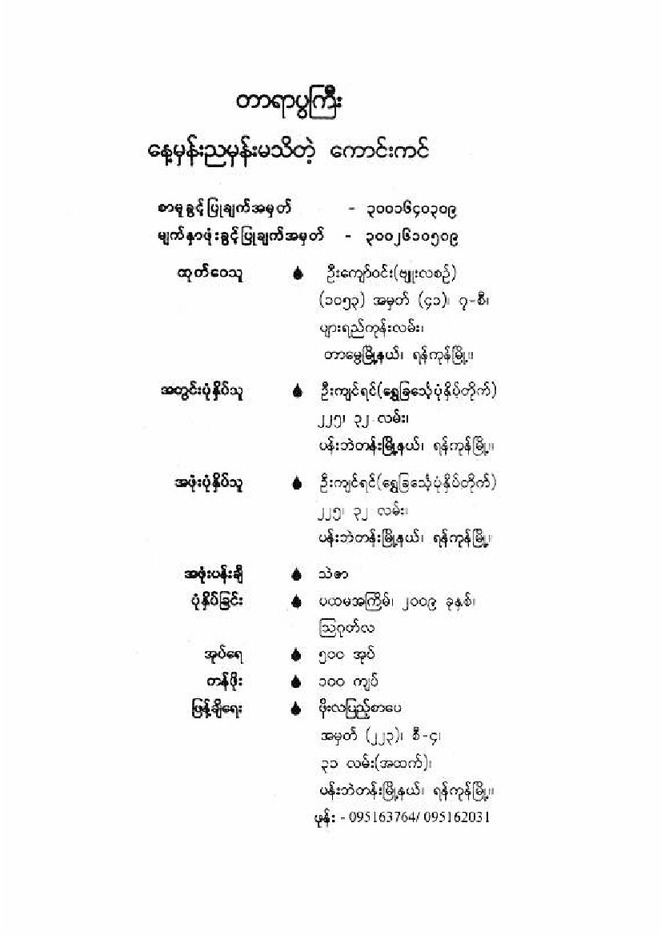 တာရာပွကြီး
နေ့မှန်းညမှန်းမသိတဲ့ ကောင်းကင်
စာမူခွင့်ပြုချက်အမှတ် - ၃၀၀၁၆၄၀၃၀၉
မျက်နှာဖုံးခွင့်ပြုချက်အမှတ် - ၃၀၀၂၆၁၀၅၀၉
ထုတ်ဝေသူ ဦးကျော်ဝင်း(ဗျူးလစဉ်)
(၁၀၅၃) အမှတ် (၄၁)၊ ၇-စီ၊
ပျားရည်ကုန်းလမ်း၊
တာမွေမြို့နယ်၊ ရန်ကုန်မြို့။
အတွင်းပုံနှိပ်သူ ဦးကျင်ရင်(ရွှေခြင်္သေ့ပုံနှိပ်တိုက်)
၂၂၅၊ ၃၂ လမ်း၊
ပန်းဘဲတန်းမြို့နယ်၊ ရန်ကုန်မြို့။
အဖုံးပုံနှိပ်သူ ဦးကျင်ရင်(ရွှေခြင်္သေ့ပုံနှိပ်တိုက်)
၂၂၅၊ ၃၂ လမ်း၊
ပန်းဘဲတန်းမြို့နယ်၊ ရန်ကုန်မြို့။
အဖုံးပန်းချီ သဲဇာ
ပုံနှိပ်ခြင်း ပထမအကြိမ်၊ ၂၀၀၉ ခုနှစ်၊
ဩဂုတ်လ
အုပ်ရေ ၅၀၀ အုပ်
တန်ဖိုး ၁၀၀ ကျပ်
ဖြန့်ချိရေး ဖိုးလပြည့်စာပေ
အမှတ် (၂၂၃)၊ စီ-၄၊
၃၁ လမ်း(အထက်)၊
ပန်းဘဲတန်းမြို့နယ်၊ ရန်ကုန်မြို့။
ဖုန်း - 095163764/ 095162031